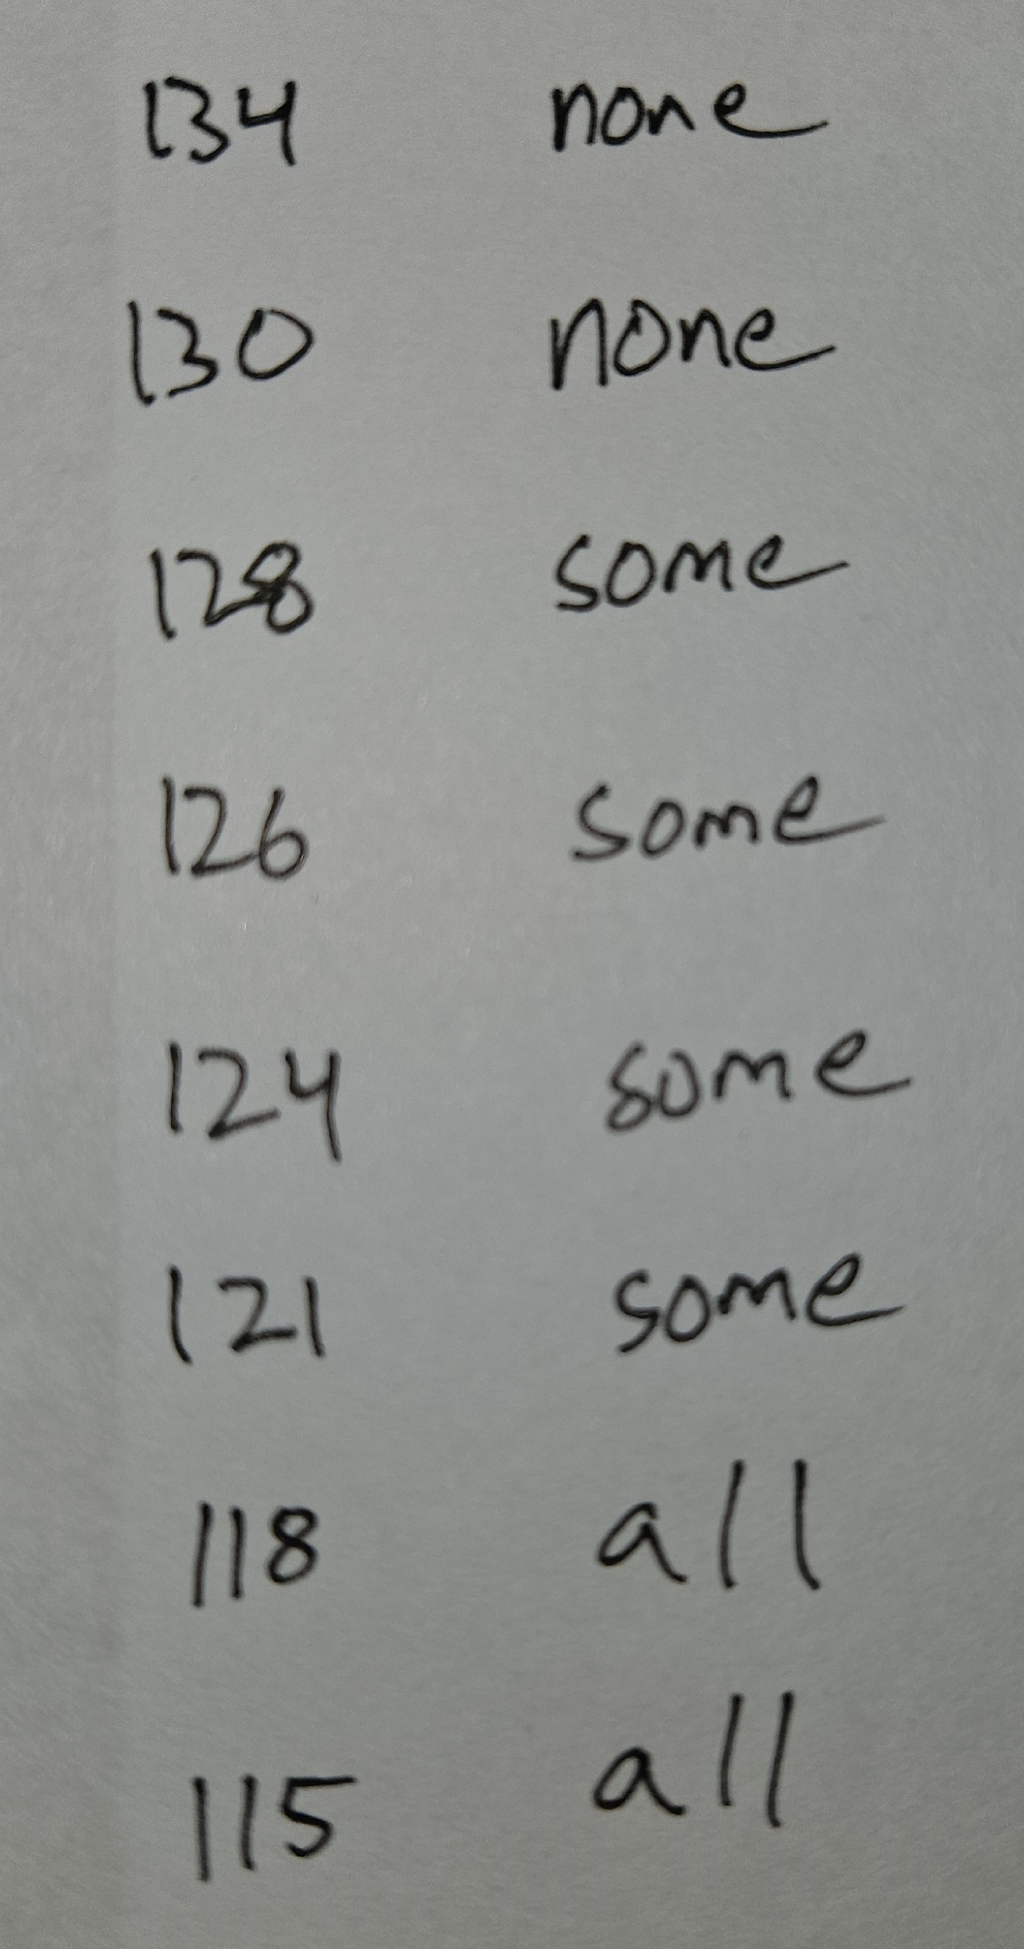 134 none
130 none
128 some
126 some
124 some
121 some
118 all
115 all